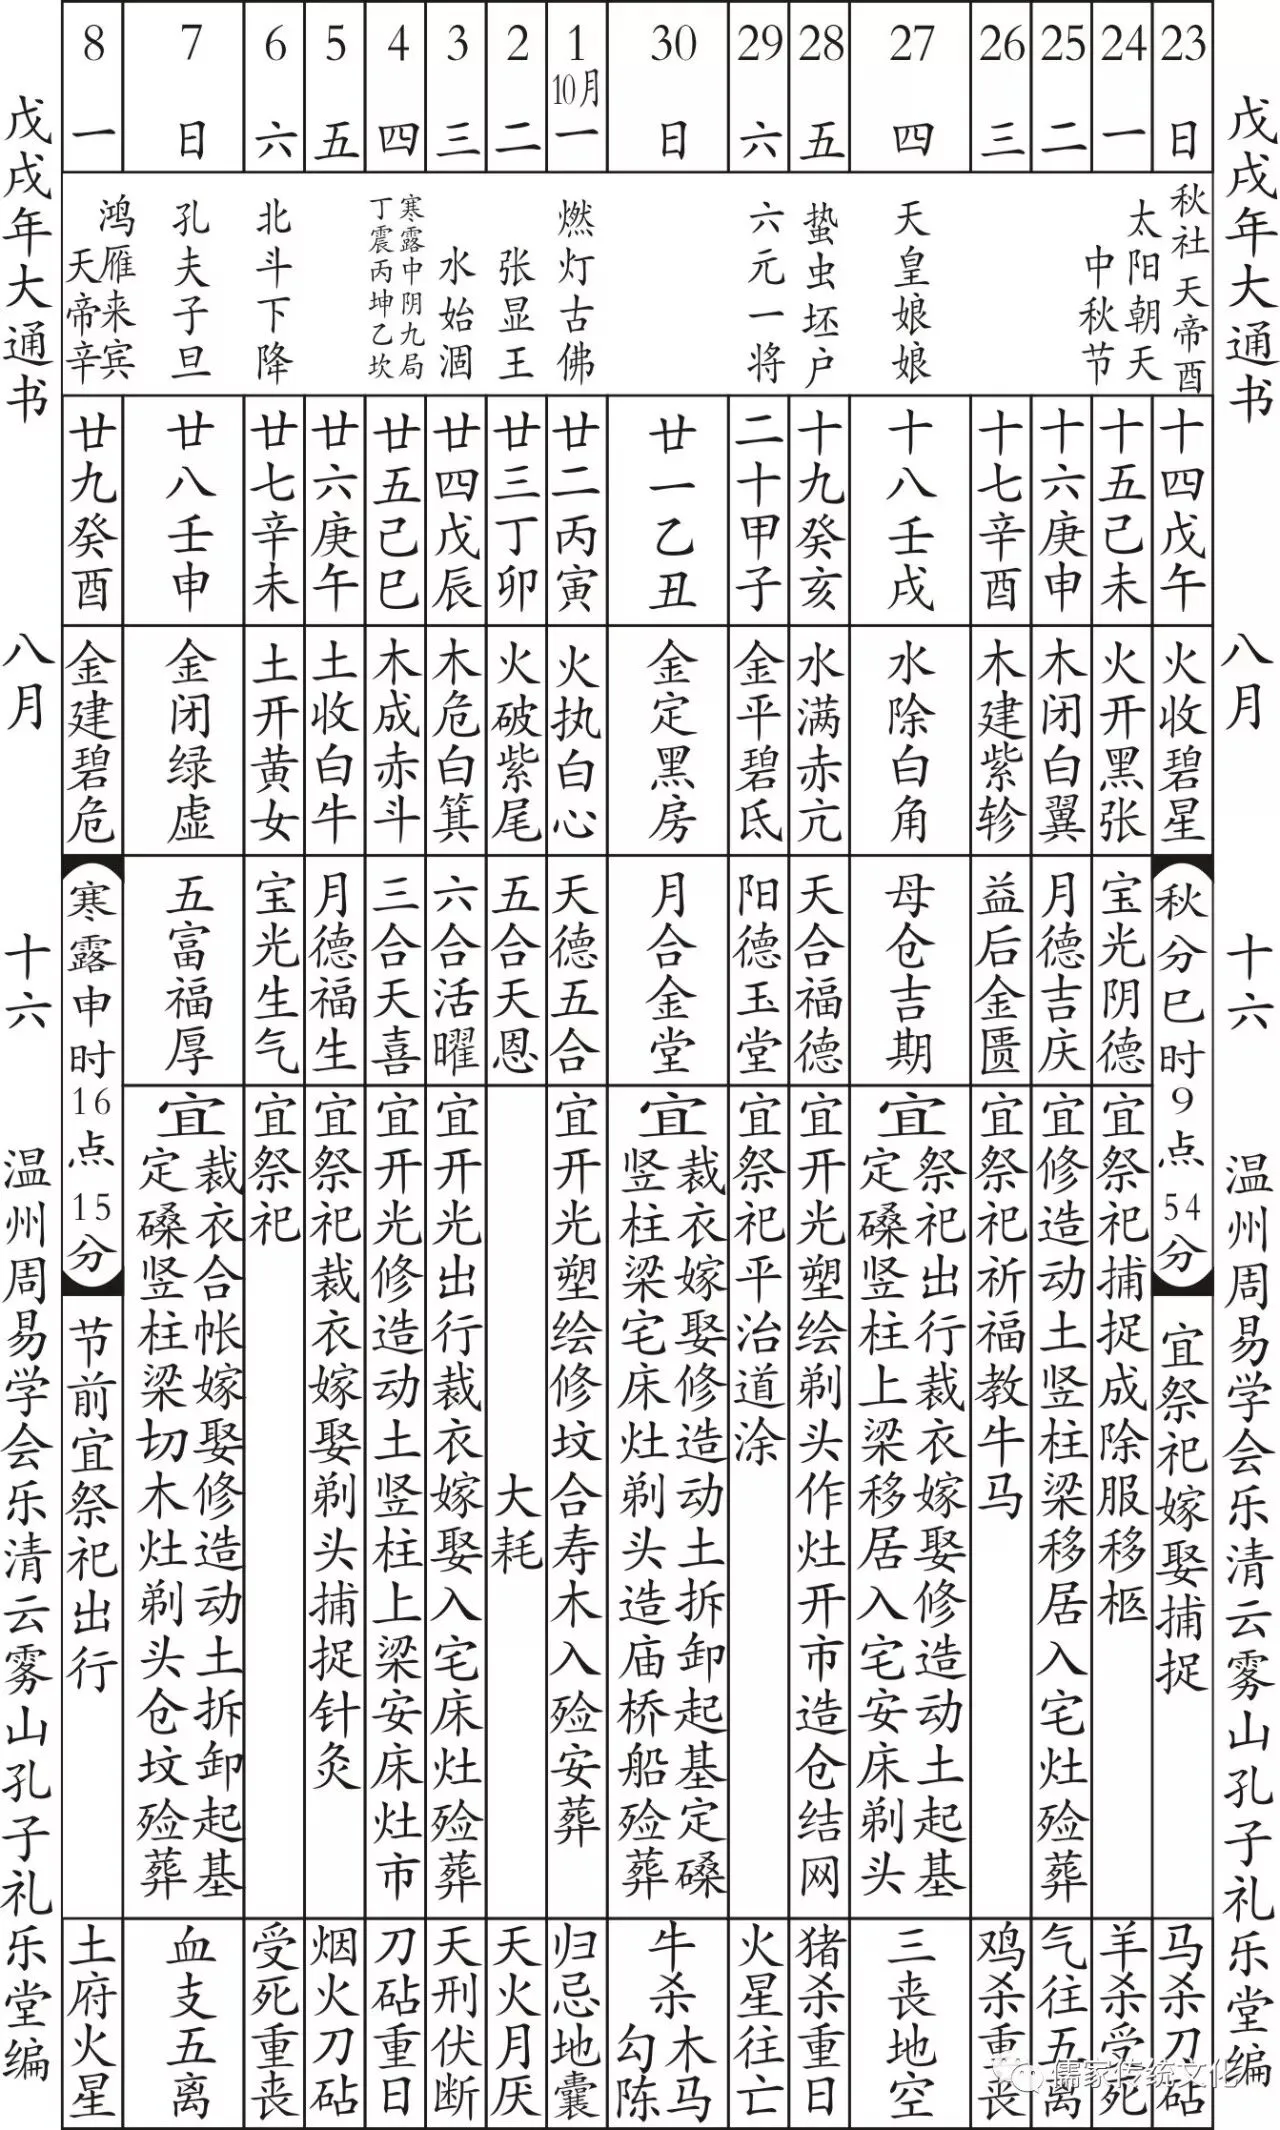 戊戌年大通书
八月
十六
温州周易学会乐清云雾山孔子礼乐堂编
23
日
秋社天帝酉
十四戊午
火收碧星
秋分巳时9点54分
宜祭祀嫁娶捕捉
马杀刀砧
24
一
太阳朝天
中秋节
十五己未
火开黑张
宝光阴德
宜祭祀捕捉成除服移柩
羊杀受死
25
二
十六庚申
木闭白翼
月德吉庆
宜修造动土竖柱梁移居入宅灶殓葬
气往五离
26
三
十七辛酉
木建紫轸
益后金匮
宜祭祀祈福教牛马
鸡杀重丧
27
四
天皇娘娘
十八壬戌
水除白角
母仓吉期
宜
祭祀出行裁衣嫁娶修造动土起基
定磉竖柱上梁移居入宅安床剃头
三丧地空
28
五
蛰虫坯户
十九癸亥
水满赤亢
天合福德
宜开光塑绘剃头作灶开市造仓结网
猪杀重日
29
六
六元一将
二十甲子
金平碧氐
阳德玉堂
宜祭祀平治道涂
火星往亡
30
日
廿一乙丑
金定黑房
月合金堂
宜
裁衣嫁娶修造动土拆卸起基定磉
竖柱梁宅床灶剃头造庙桥船殓葬
牛杀
木马
勾陈
1
10月
一
燃灯古佛
廿二丙寅
火执白心
天德五合
宜开光塑绘修坟合寿木入殓安葬
归忌地囊
2
二
张显王
廿三丁卯
火破紫尾
五合天恩
大耗
天火月厌
3
三
水始涸
廿四戊辰
木危白箕
六合活曜
宜开光出行裁衣嫁娶入宅床灶殓葬
天刑伏断
4
四
寒露中阴九局
丁震丙坤乙坎
廿五己巳
木成赤斗
三合天喜
宜开光修造动土竖柱上梁安床灶市
刀砧重日
5
五
廿六庚午
土收白牛
月德福生
宜祭祀裁衣嫁娶剃头捕捉针灸
烟火刀砧
6
六
北斗下降
廿七辛未
土开黄女
宝光生气
宜祭祀
受死重丧
7
日
孔夫子旦
廿八壬申
金闭绿虚
五富福厚
宜
裁衣合帐嫁娶修造动土拆卸起基
定磉竖柱梁切木灶剃头仓坟殓葬
血支五离
8
一
鸿雁来宾
天帝辛
廿九癸酉
金建碧危
寒露申时16点15分
节前宜祭祀出行
土府火星
戊戌年大通书
八月
十六
温州周易学会乐清云雾山孔子礼乐堂编
儒家传统文化